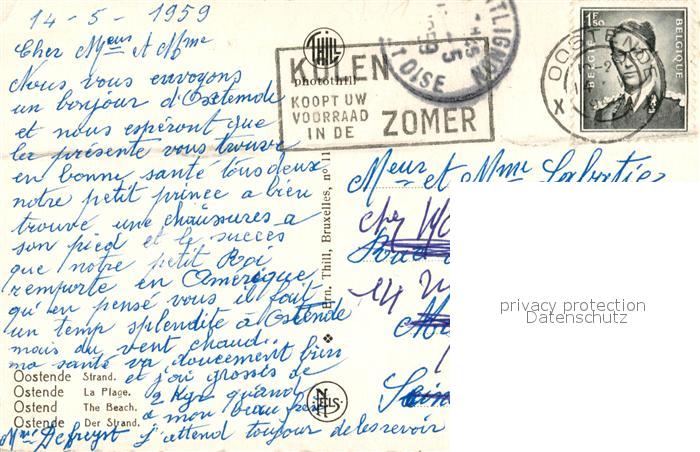 14-5-1959
Cher Meur et Mme
Nous vous envoyons
un bonjour d'Ostende
et nous espéront que
la présente vous trouve
en bonne santé tous deux
notre petit prince a bien
trouvé une chaussures a
son pied et le succes
que notre petit Roi
remporte en Amerique
qu'en pensé vous il fait
un temp splendite à Ostende
mais du vent chaud
ma santé va doucement bien
et j'ai grossés de
2 Kgr quand
a mon beau frère
Mme Defreyst j'attend toujour de les revoir
Oostende Strand.
Ostende La Plage.
Ostend The Beach.
Ostende Der Strand.
THILL
photothill
Ern. Thill, Bruxelles, no 11
NELS
KOLEN
KOOPT UW
VOORRAAD
IN DE ZOMER
-5
1959
OISE
OOSTENDE
X
1F50
BELGIE
BELGIQUE
Meur et Mme Sabatier
chez
privacy protection
Datenschutz